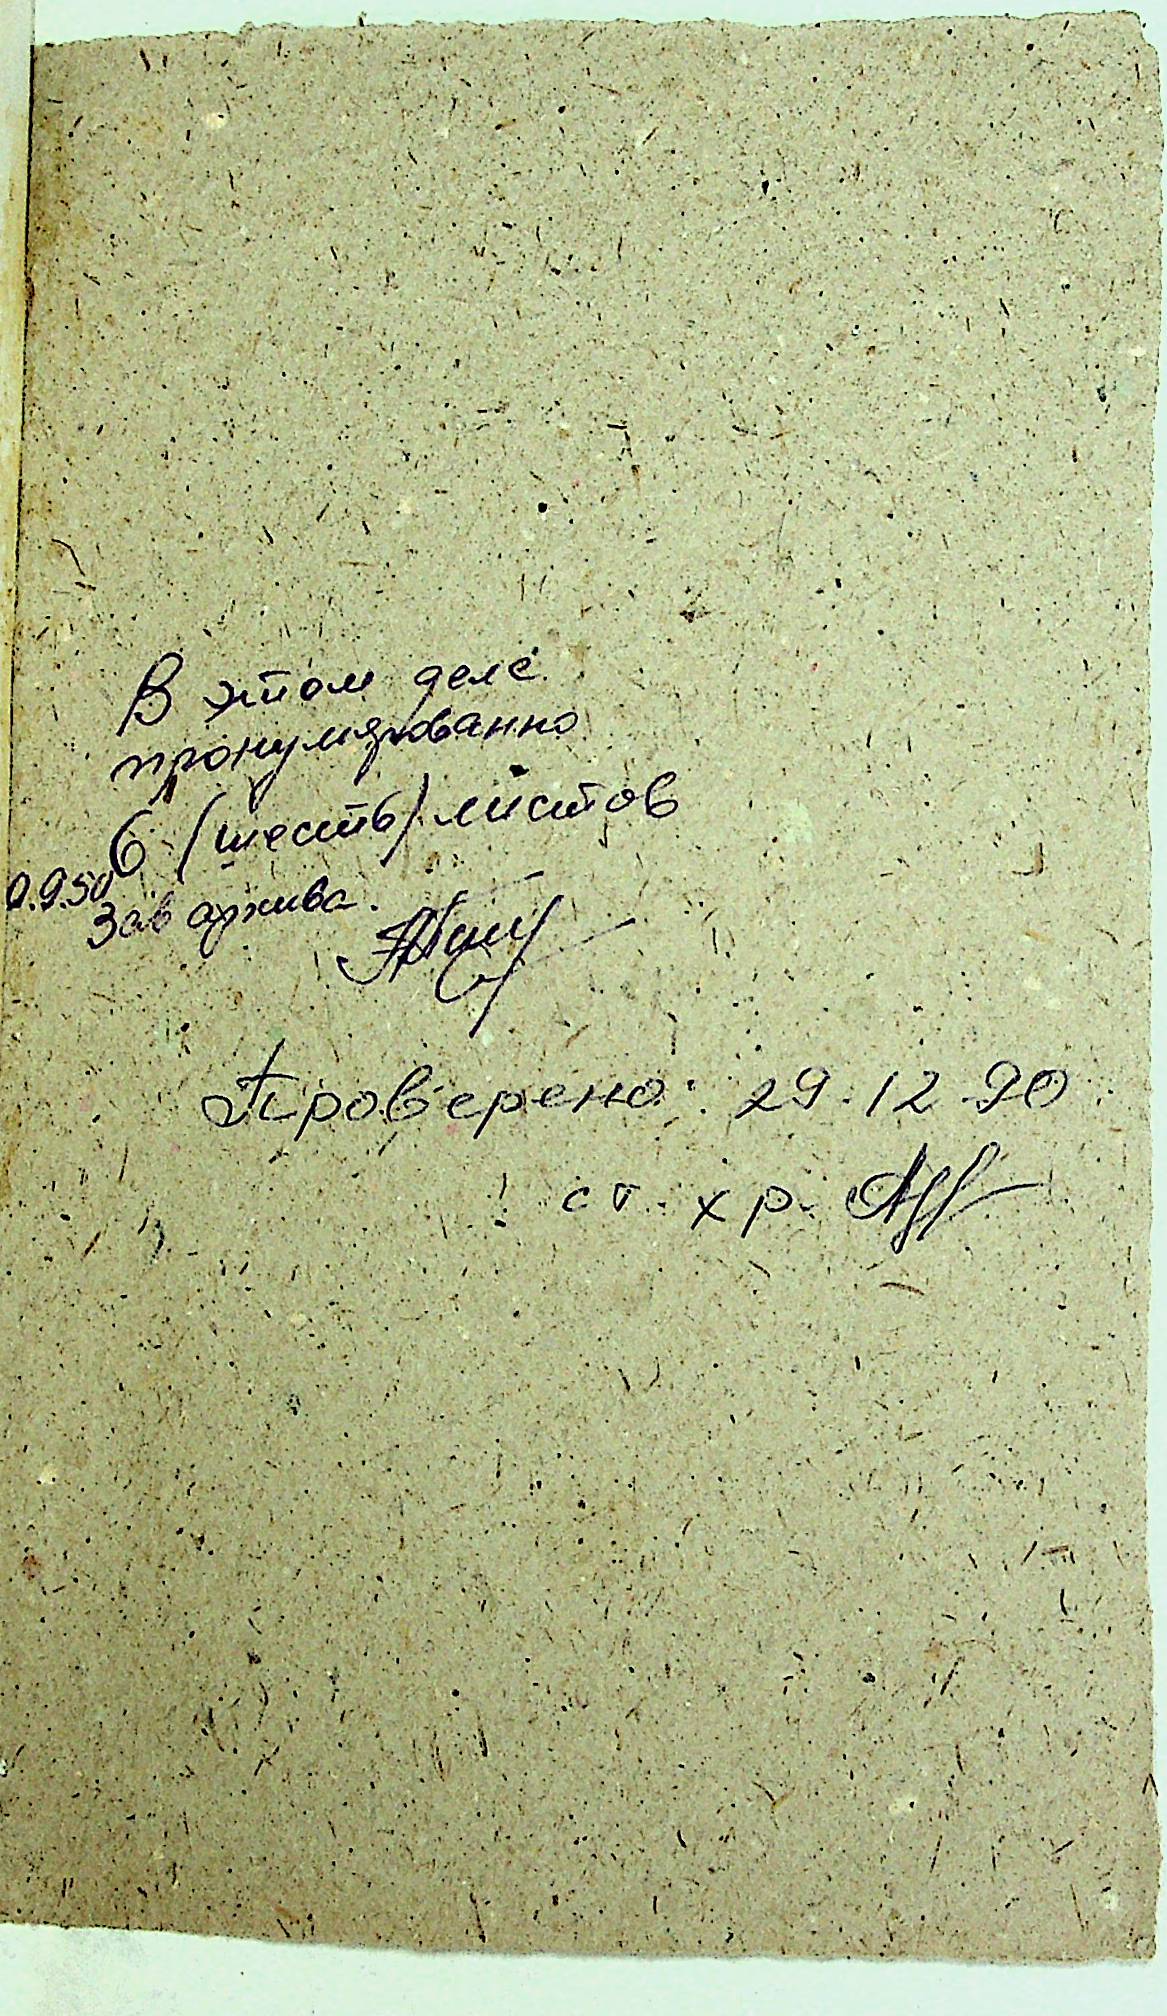 В этом деле
пронумярованно
6 (шесть) листов
0.9.50
Зав архива.
Проверено: 29.12.90
ст. хр.